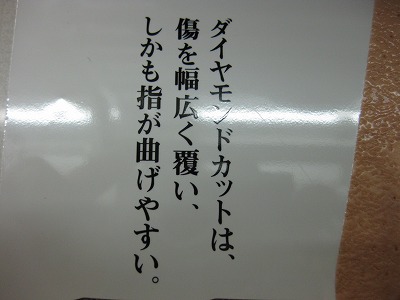 ダイヤモンドカットは、
傷を幅広く覆い、
しかも指が曲げやすい。